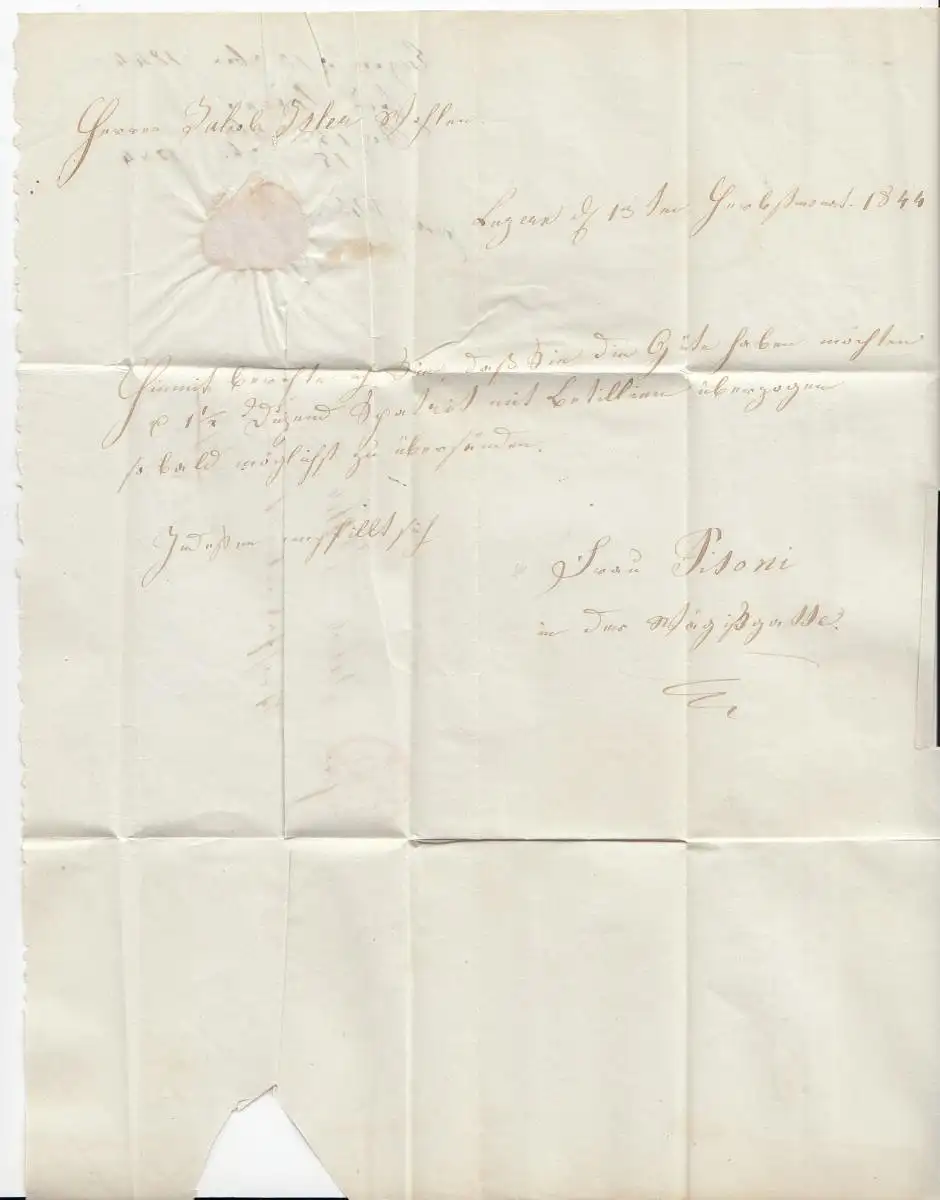 Herren Jakob Isler Wohlen.
Luzern d 13ten Herbstmont. 1844
Hiemit berichte ich Sie, daß Sie die Güte haben möchten
1 1/2 Duzend Spatrit mit Betillien überzogen
so bald möglichst zu übersänden.
Indeßen empfillt sich
Frau Pisoni
in der Wägißgasse.